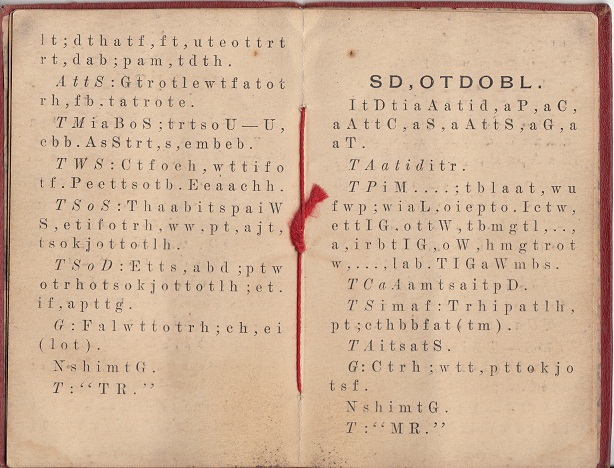 lt;dthatf,ft,uteottrt
rt,dab;pam,tdth.
AttS:Gtrotlewtfatot
rh,fb.tatrote.
TMiaBoS;trtsoU—U,
cbb.AsStrt,s,embeb.
TWS:Ctfoeh,wttifo
tf.Peettsotb.Eeaachh.
TSoS:ThaabitspaiW
S,etifotrh,ww,pt,ajt,
tsokjottotlh.
TSoD:Etts,abd;ptw
otrhotsokjottotlh;et.
if,apttg.
G:Falwttotrh;ch,ei
(lot).
NshimtG.
T:“TR.”
SD,OTDOBL.
ItDtiaAatid,aP,aC,
aAttC,aS,aAttS,aG,a
aT.
TAatiditr.
TPiM....;tblaat,wu
fwp;wiaL,oiepto.Ictw,
ettIG,ottW,tbmgtl,..,
a,irbtIG,oW,hmgtrot
w,...,lab.TIGaWmbs.
TCaAamtsaitpD.
TSimaf:Trhipatlh,
pt;cthbbfat(tm).
TAitsatS.
G:Ctrh;wtt,pttokjo
tsf.
NshimtG.
T:“MR.”